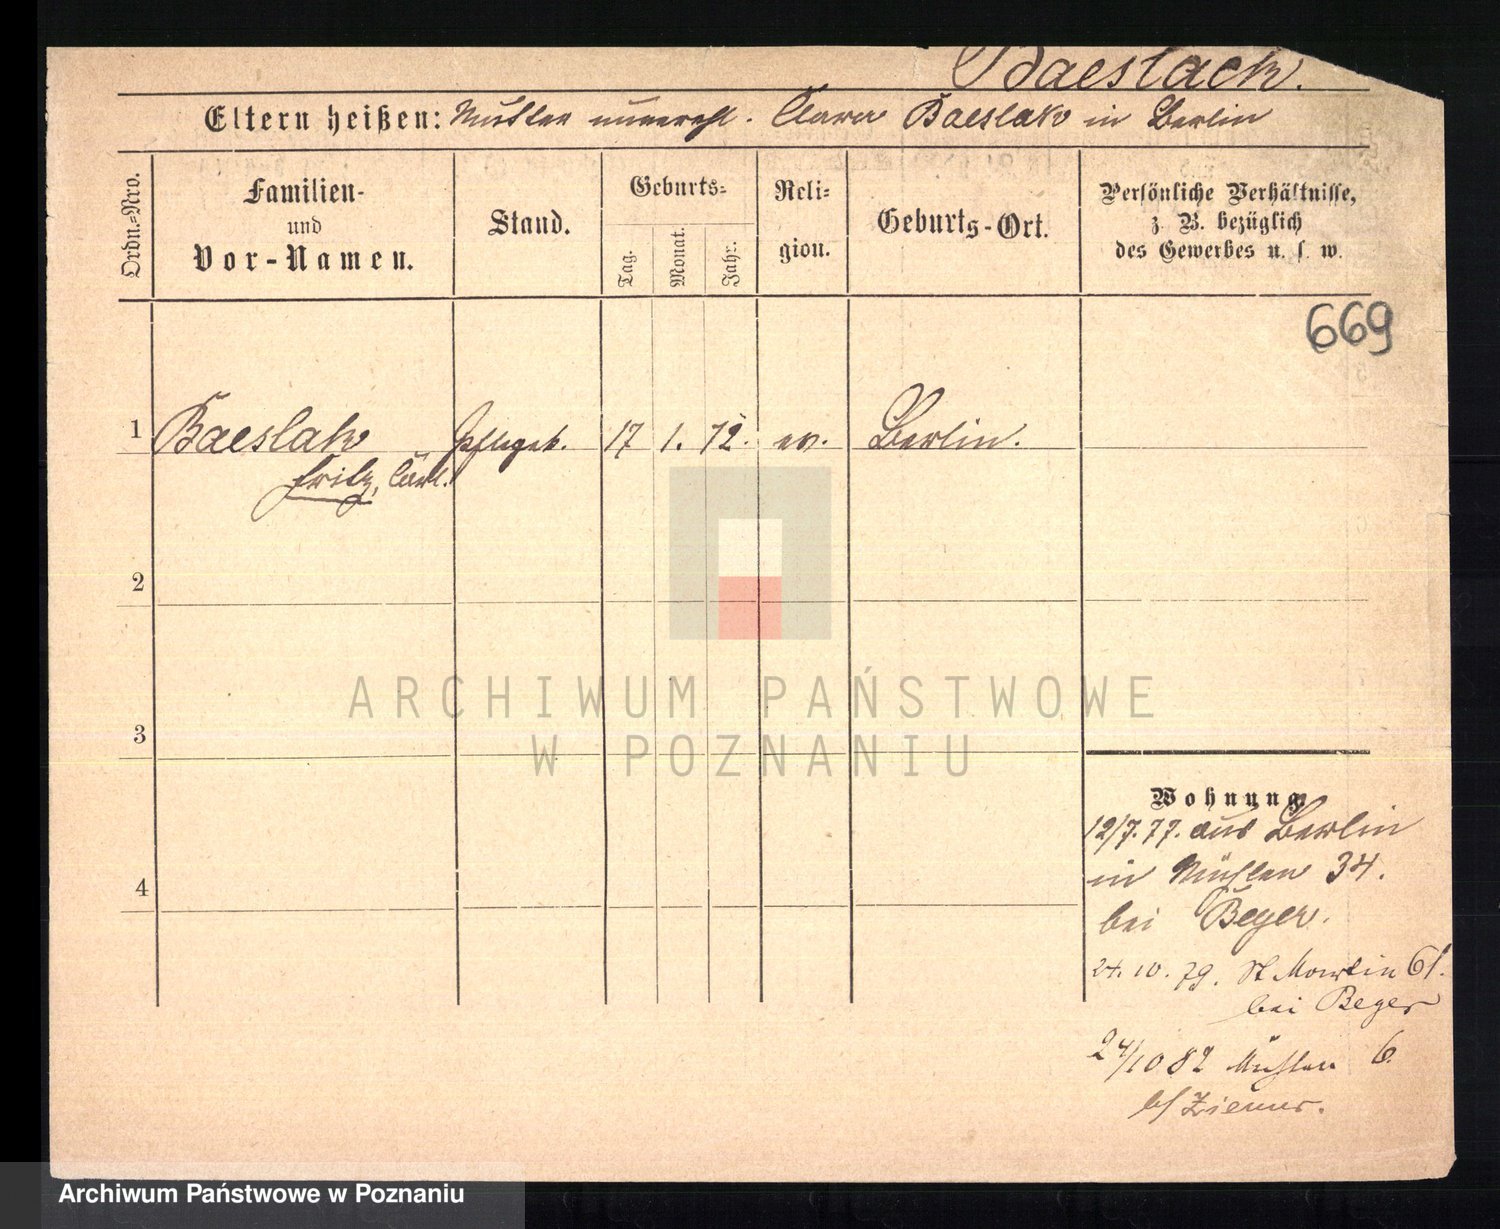 Baeslack.
Eltern heißen: Mutter unverehl. Clara Baeslak in Berlin
Ordn.-Nro.
Familien-
und
Vor-Namen.
Stand.
Geburts-
Tag.
Monat.
Jahr.
Reli-
gion.
Geburts-Ort.
Persönliche Verhältnisse,
z. B. bezüglich
des Gewerbes u. s. w.
669
1 Baeslak Pflegek. 17 1. 72. ev. Berlin.
Fritz, Carl.
2
3
4
Wohnung
12/7.77. aus Berlin
in Mühlen 34.
bei Beyer.
24. 10. 79. St Martin 61.
bei Beyer
24/10 82 Mühlen 6.
b/ Ziemer.
ARCHIWUM PAŃSTWOWE
W POZNANIU
Archiwum Państwowe w Poznaniu